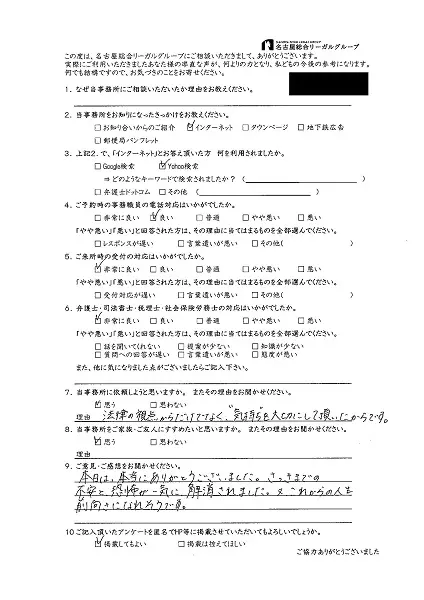 名古屋総合リーガルグループ
この度は、名古屋総合リーガルグループにご相談いただきまして、ありがとうございます。
実際にご利用いただきましたあなた様の率直な声が、何よりの力となり、私どもの今後の参考になります。
何でも結構ですので、お気づきのことをお寄せください。
1. なぜ当事務所にご相談いただいたか理由をお教えください。
2. 当事務所をお知りになったきっかけをお教えください。
□お知り合いからのご紹介 ☑インターネット □タウンページ □地下鉄広告
□郵便局パンフレット
3. 上記2.で、「インターネット」とお答え頂いた方 何を利用されましたか。
□Google検索 ☑Yahoo検索
⇒どのようなキーワードで検索されましたか?( )
□弁護士ドットコム □その他 ( )
4. ご予約時の事務職員の電話対応はいかがでしたか。
□非常に良い ☑良い □普通 □やや悪い □悪い
「やや悪い」「悪い」と回答された方は、その理由に当てはまるものを全部選んでください。
□レスポンスが遅い □言葉遣いが悪い □その他( )
5. ご来所時の受付の対応はいかがでしたか。
☑非常に良い □良い □普通 □やや悪い □悪い
「やや悪い」「悪い」と回答された方は、その理由に当てはまるものを全部選んでください。
□受付対応が遅い □言葉遣いが悪い □その他( )
6. 弁護士・司法書士・税理士・社会保険労務士の対応はいかがでしたか。
☑非常に良い □良い □普通 □やや悪い □悪い
「やや悪い」「悪い」と回答された方は、その理由に当てはまるものを全部選んでください。
□話を聞いてくれない □提案が少ない □知識が少ない
□質問への回答が遅い □言葉遣いが悪い □態度が悪い
また、他に気になりました点がございましたらご記入下さい。
7. 当事務所に依頼しようと思いますか。 またその理由をお聞かせください。
☑思う □思わない
理由 法律の視点からだけでなく、"気持ち"を大切にして頂いたからです。
8. 当事務所をご家族・ご友人にすすめたいと思いますか。 またその理由をお聞かせください。
☑思う □思わない
理由
9. ご意見・ご感想をお聞かせください。
本日は、本当にありがとうございました。さっきまでの
不安と、恐怖が一気に解消されました。又、これからの人生
前向きになれそうです。
10 ご記入頂いたアンケートを匿名でHP等に掲載させていただいてもよろしいでしょうか。
☑掲載してもよい □掲載は控えてほしい
ご協力ありがとうございました